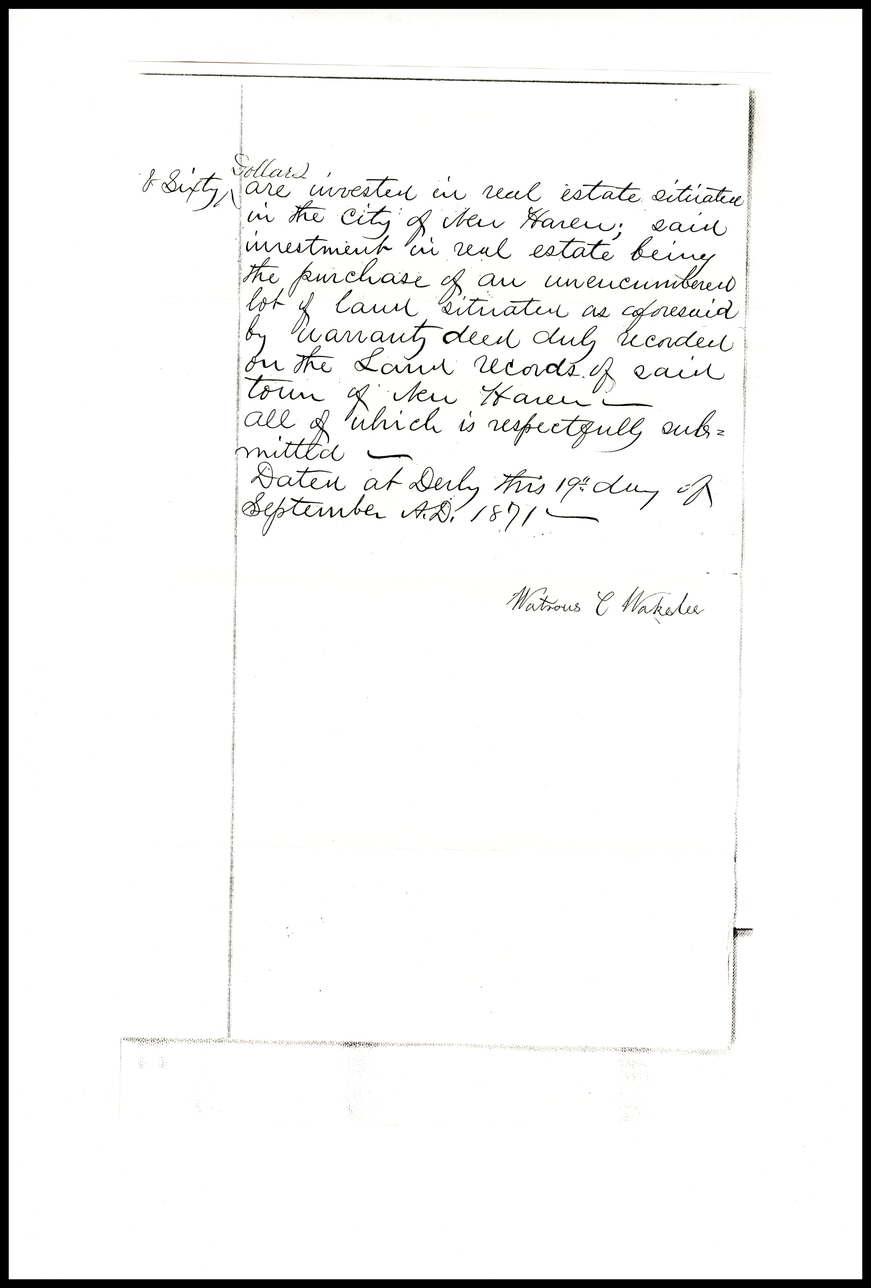 Dollars
& Sixty, are invested in real estate situated
in the city of New Haven; said
investment in real estate being
the purchase of an unencumbered
lot of land situated as aforesaid
by warranty deed duly recorded
on the Land records of said
town of New Haven —
all of which is respectfully sub=
mitted —
Dated at Derby this 19th day of
September A.D. 1871 —
Watrous C Wakelee